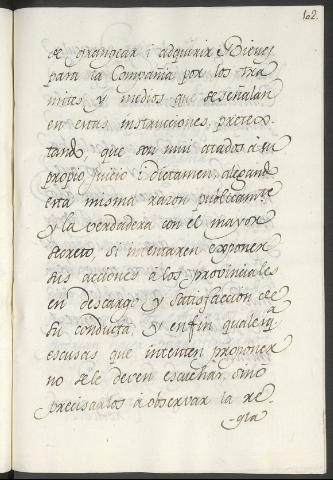 102.
de grangear i adquirir Bienes
para la Compañia por los tra
mites y medios que se señalan
en estas instrucciones, protex-
tando, que son mui atados à su
propio juicio i dictamen, alegando
esta misma razon publicamte
y la verdadera con el mayor
secreto, si intentaren exponer
sus acciones à los provinciales
en descargo y satisfaccion de
su conducta, y en fin qualesqa
escusas que intenten proponer
no se le deven escuchar, sino
precisarlos à observar la re-
-gla